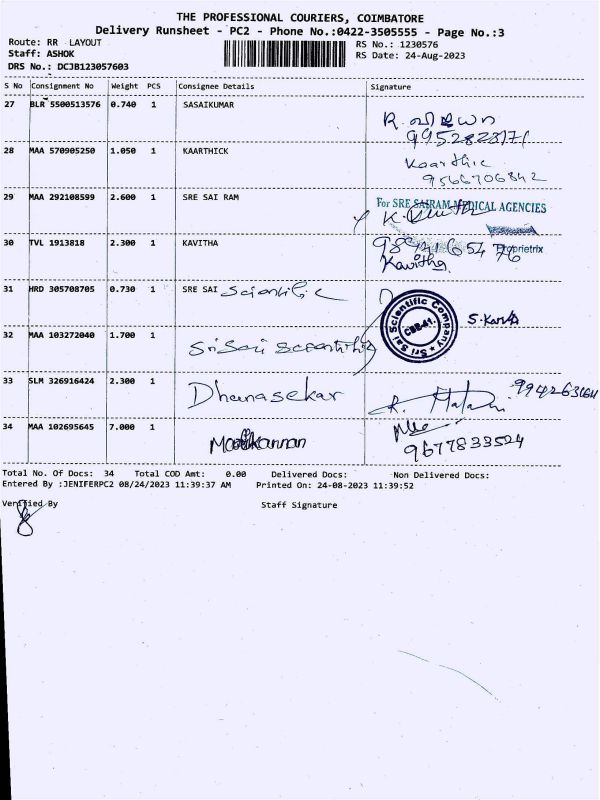 THE PROFESSIONAL COURIERS, COIMBATORE
Delivery Runsheet - PC2 - Phone No.:0422-3505555 - Page No.:3
Route: RR LAYOUT
Staff: ASHOK
DRS No.: DCJB123057603
RS No.: 1230576
RS Date: 24-Aug-2023
S No Consignment No Weight PCS Consignee Details Signature
27 BLR 5500513576 0.740 1 SASAIKUMAR
R.
28 MAA 570905250 1.050 1 KAARTHICK
Kaarthic
9566706842
29 MAA 292108599 2.600 1 SRE SAI RAM
For SRE SAIRAM MEDICAL AGENCIES
Proprietrix
30 TVL 1913818 2.300 1 KAVITHA
Kavitha
31 HRD 305708705 0.730 1 SRE SAI Scientific
Sri Sai Scientific Company
CBE-41.
32 MAA 103272040 1.700 1 Sri Sai Scientific
33 SLM 326916424 2.300 1 Dhanasekar
34 MAA 102695645 7.000 1
9677833524
Total No. Of Docs: 34 Total COD Amt: 0.00 Delivered Docs: Non Delivered Docs:
Entered By :JENIFERPC2 08/24/2023 11:39:37 AM Printed On: 24-08-2023 11:39:52
Verified By Staff Signature